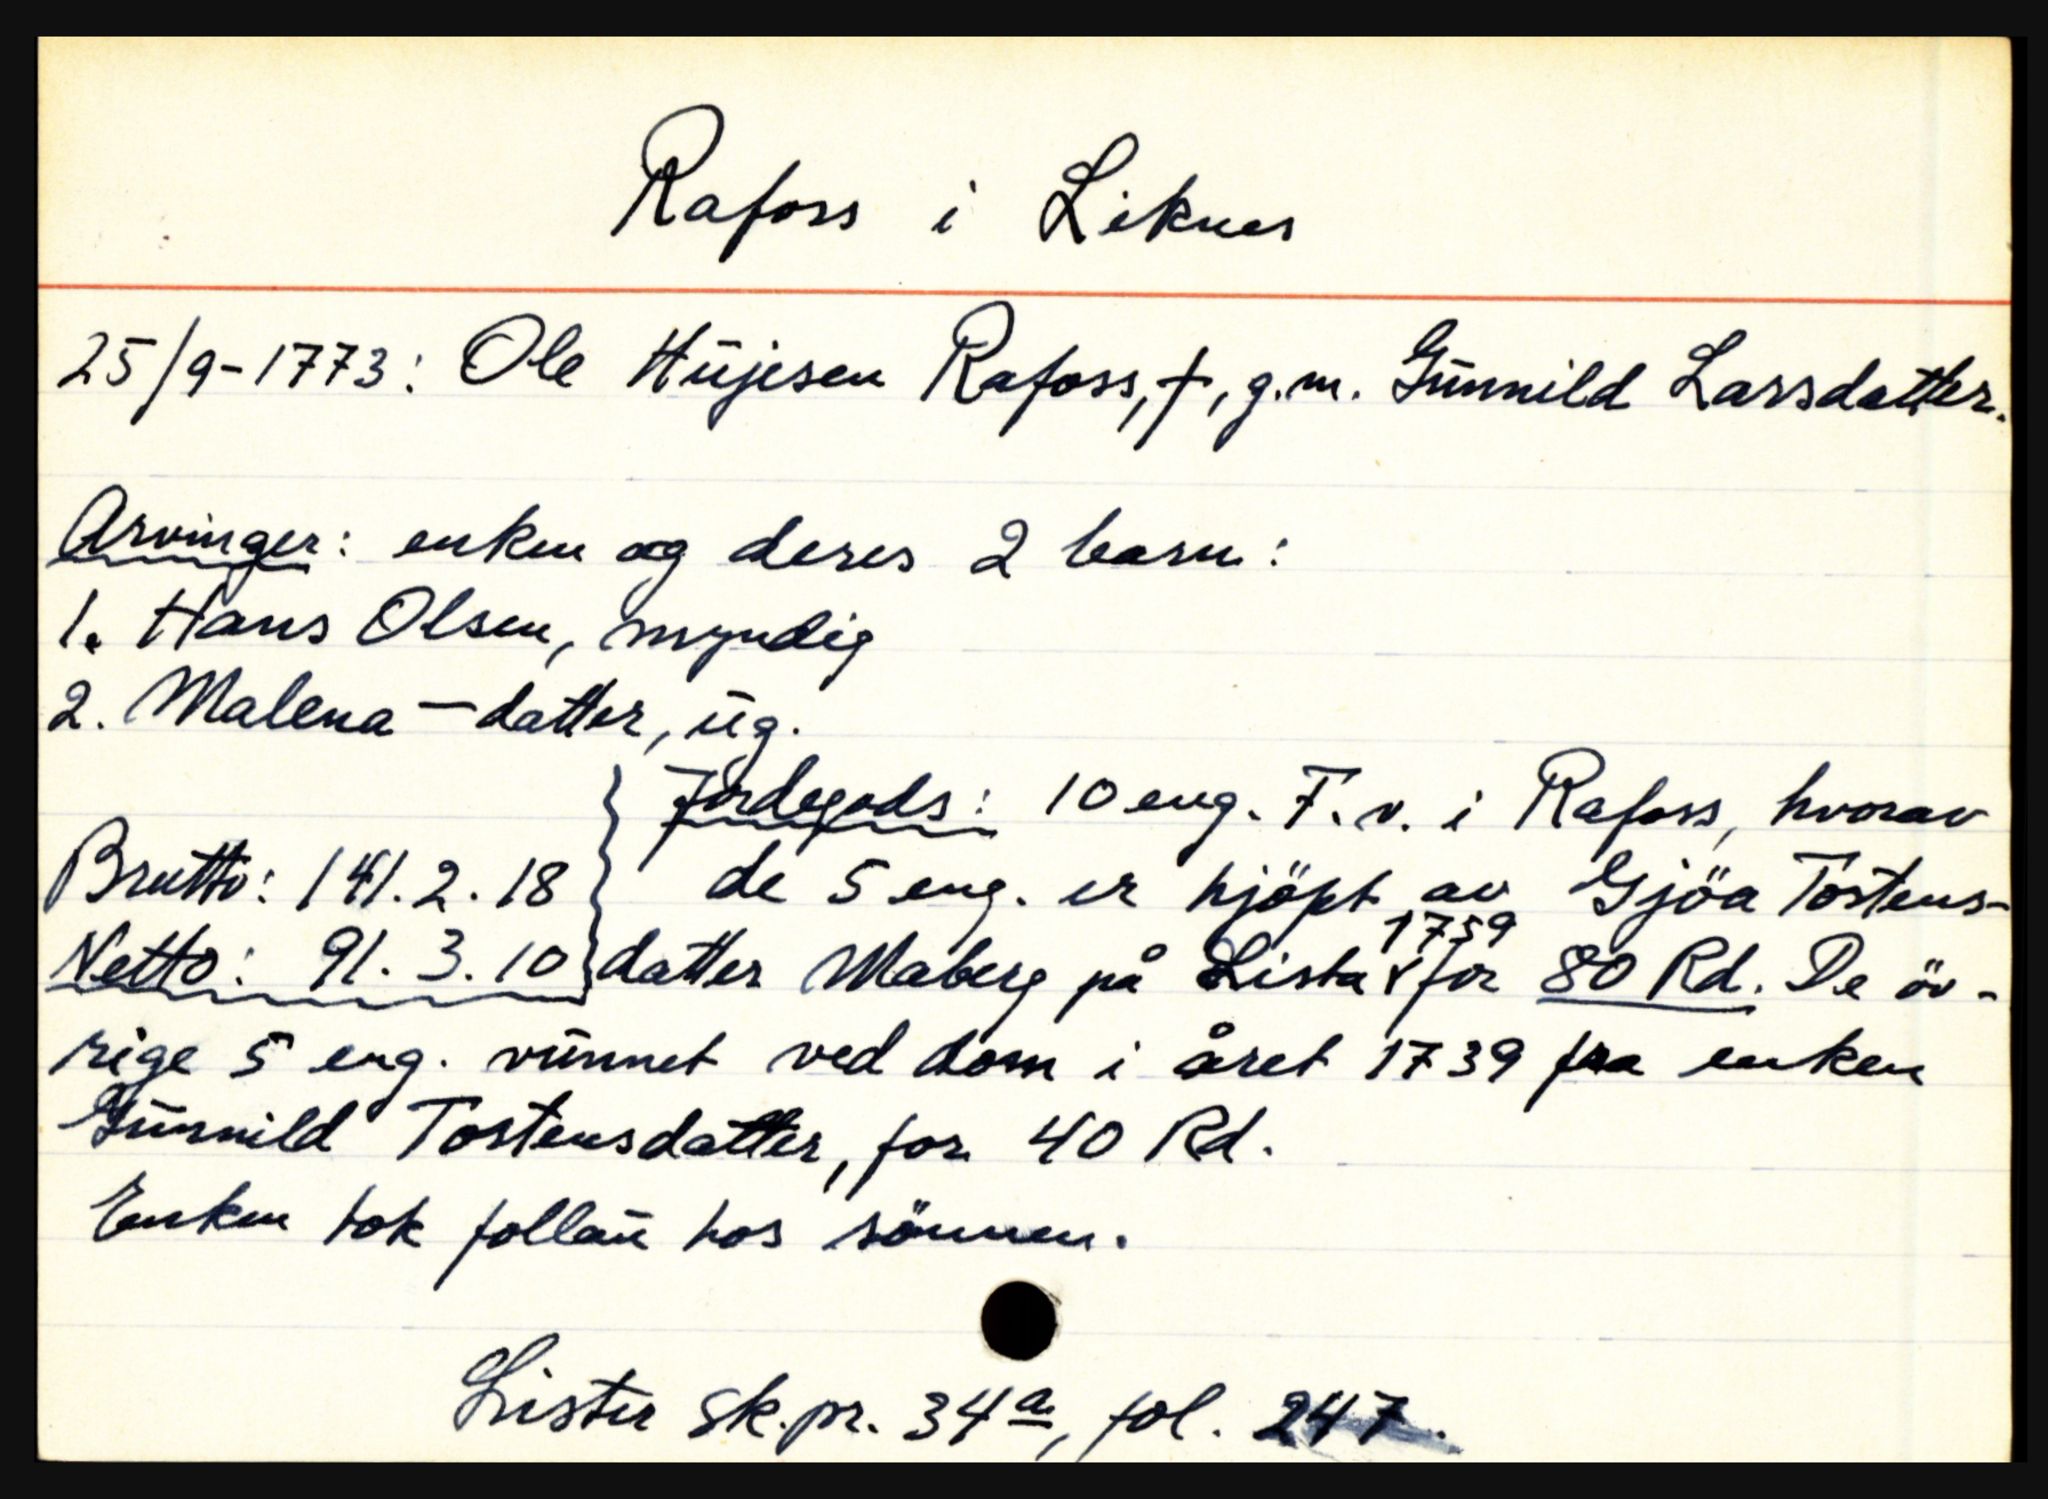 Rafoss i Liknes
25/9-1773: Ole Hüjesen Rafoss, †, g.m. Günnild Larsdatter.
Arvinger: enken og deres 2 barn:
1. Hans Olsen, myndig
2. Malena - datter, üg.
Jordegods: 10 eng. F.v. i Rafoss, hvorav
Brutto: 141.2.18 de 5 eng. er kjöpt av Gjöa Tostens-
Netto: 91.3.10 datter Maberg på Lista 1759 for 80 Rd. De öv-
rige 5 eng. vünnet ved dom i året 1739 fra enken
Günnild Tostensdatter, for 40 Rd.
Enken tok follaü hos sönnen.
Lister sk.pr. 34a, fol. 247.